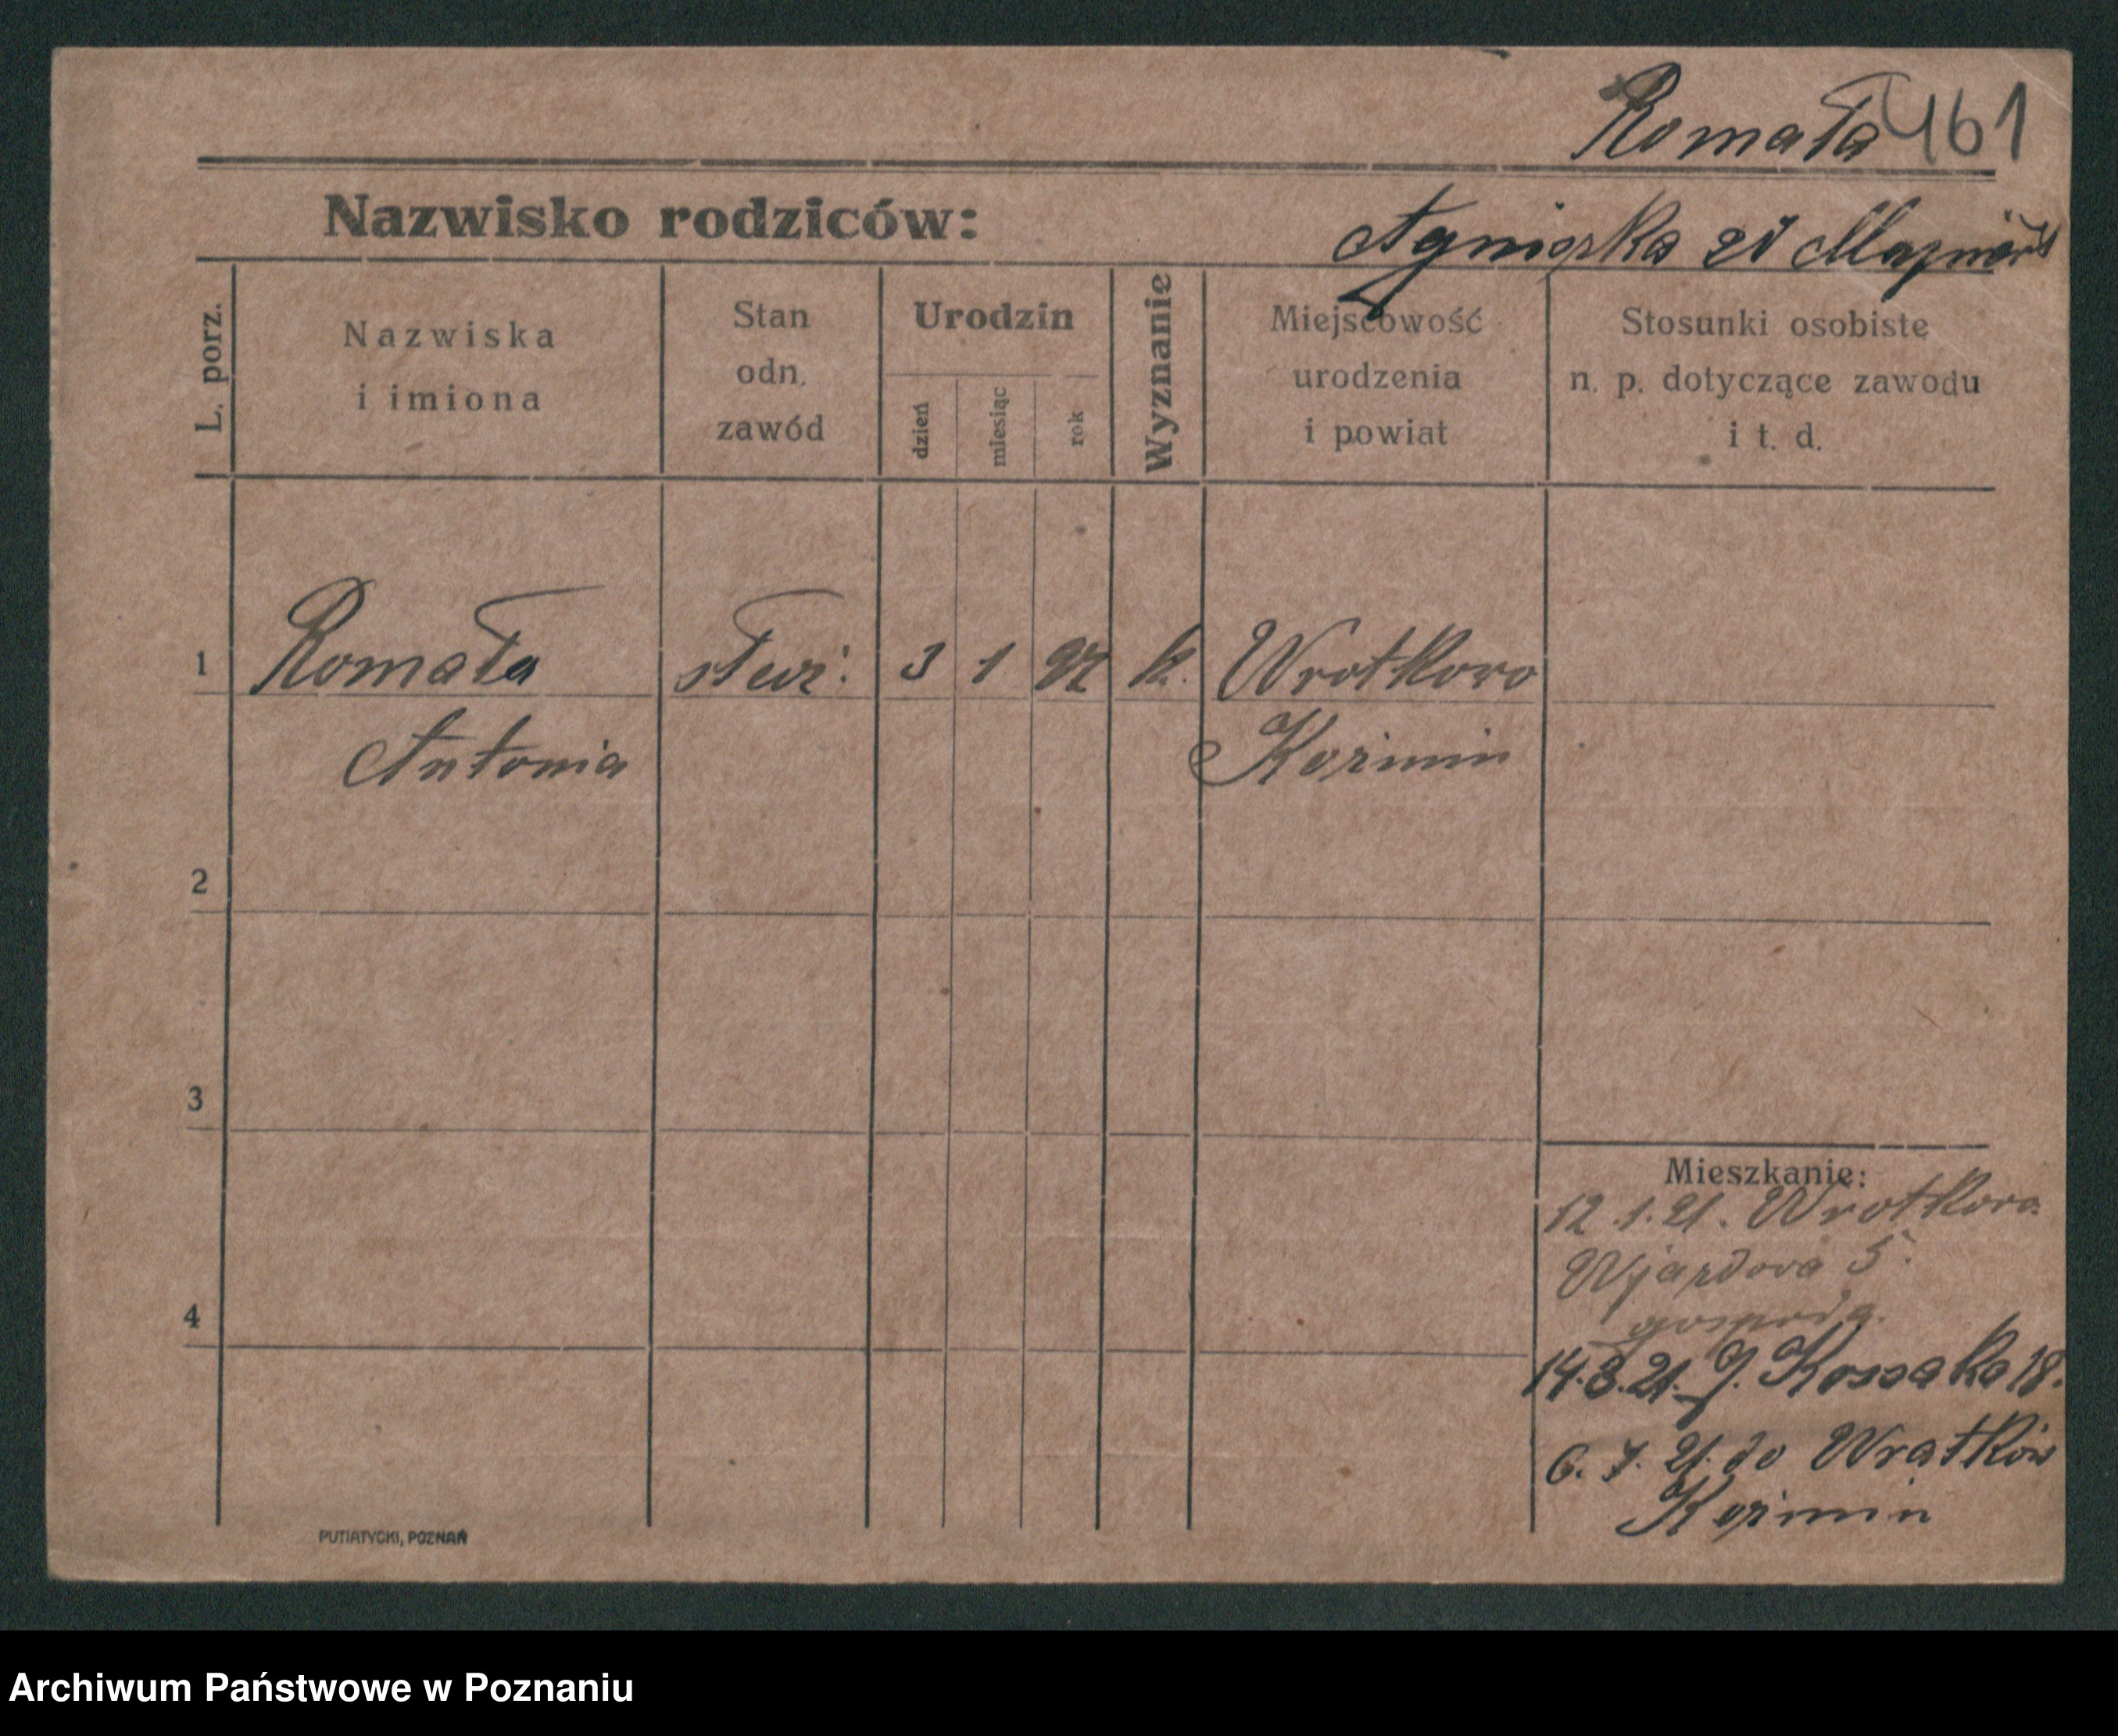 Romała 461
Nazwisko rodziców:
Agnieszka zd
L. porz.
Nazwiska
i imiona
Stan
odn.
zawód
Urodzin
dzień
miesiąc
rok
Wyznanie
Miejscowość
urodzenia
i powiat
Stosunki osobiste
n. p. dotyczące zawodu
i t. d.
1 Romała służ. 3 1 97 k. Wrotkowo
Antonia Kozmin
2
3
4
Mieszkanie:
12.1.21. Wrotkowo
Wjazdowa 5.
gospoda.
14.3.21. J. Kossaka 18.
6. 7. 21. do Wrotków
Kozmin
PUTIATYCKI, POZNAŃ
Archiwum Państwowe w Poznaniu